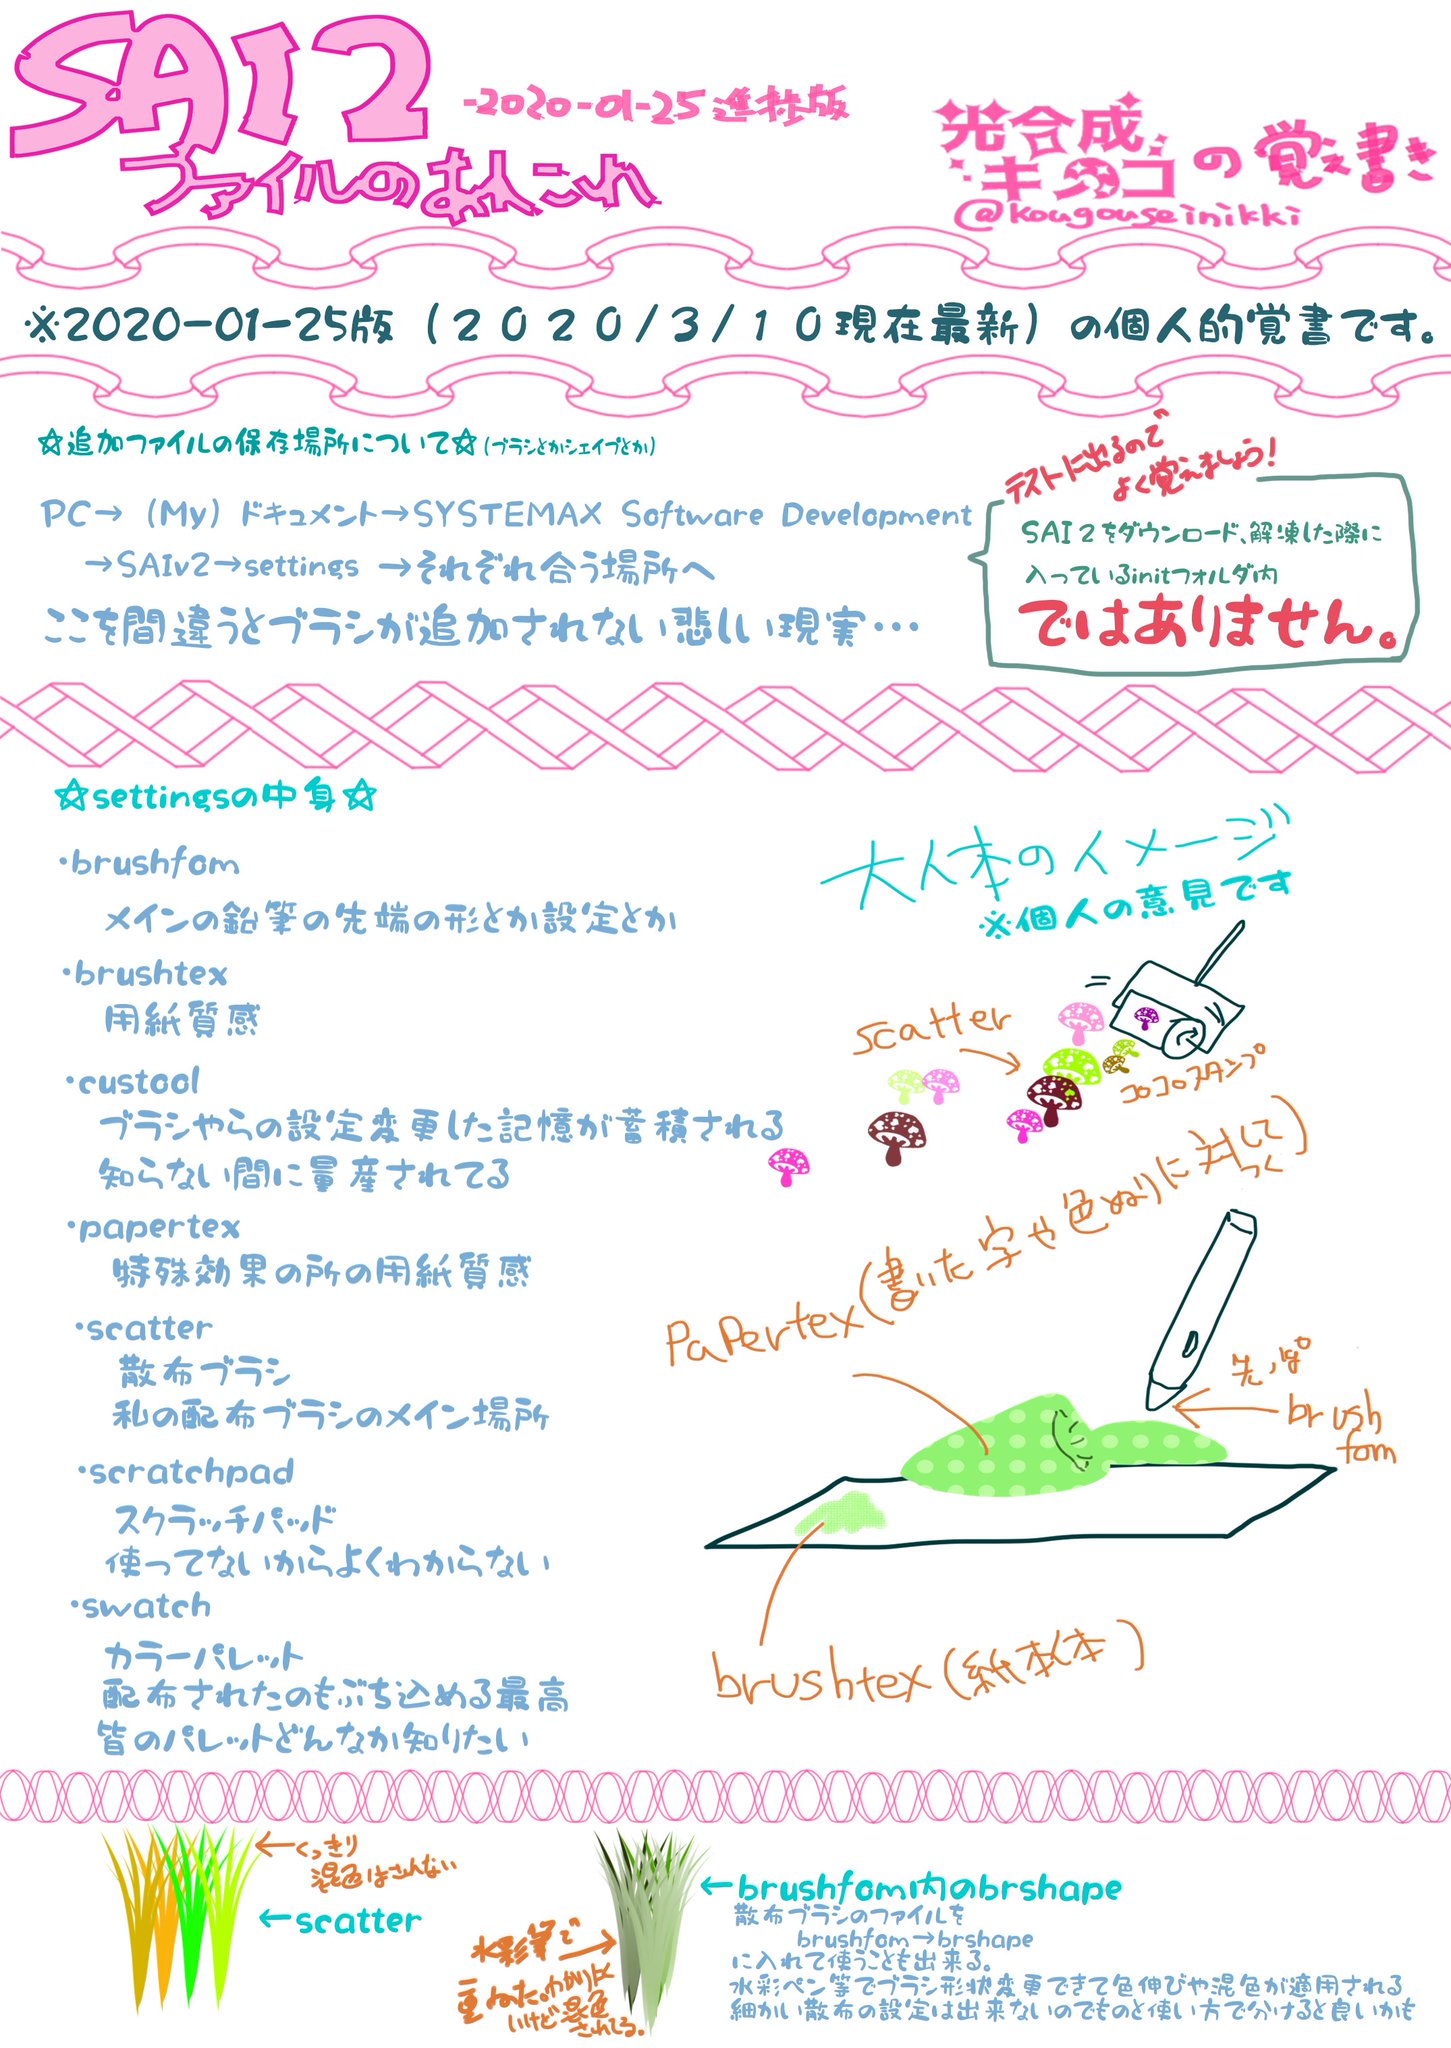 SAI2
ファイルのあれこれ
-2020-01-25進捗版
光合成
キノコの覚え書き
@kougouseinikki
※2020-01-25版（２０２０/３/１０現在最新）の個人的覚書です。
☆追加ファイルの保存場所について☆(ブラシとかシェイプとか)
PC→（My）ドキュメント→SYSTEMAX Software Development
→SAIv2→settings →それぞれ合う場所へ
ここを間違うとブラシが追加されない悲しい現実・・・
テストに出るので
よく覚えましょう!
SAI２をダウンロード、解凍した際に
入っているinitフォルダ内
ではありません。
☆settingsの中身☆
・brushfom
メインの鉛筆の先端の形とか設定とか
・brushtex
用紙質感
・custool
ブラシやらの設定変更した記憶が蓄積される
知らない間に量産されてる
・papertex
特殊効果の所の用紙質感
・scatter
散布ブラシ
私の配布ブラシのメイン場所
・scratchpad
スクラッチパッド
使ってないからよくわからない
・swatch
カラーパレット
配布されたのもぶち込める最高
皆のパレットどんなか知りたい
大人本のイメージ
※個人の意見です
scatter
コロコロスタンプ
Papertex(書いた字や色ぬりに対して
つく)
先っぽ
brush
fom
brushtex(紙本体)
←くっきり
混色はされない
←scatter
水彩筆で
重ねた。わかりにく
いけど混色
されてる。
←brushfom内のbrshape
散布ブラシのファイルを
brushfom→brshape
に入れて使うことも出来る。
水彩ペン等でブラシ形状変更できて色伸びや混色が適用される
細かい散布の設定は出来ないのでものと使い方で分けると良いかも